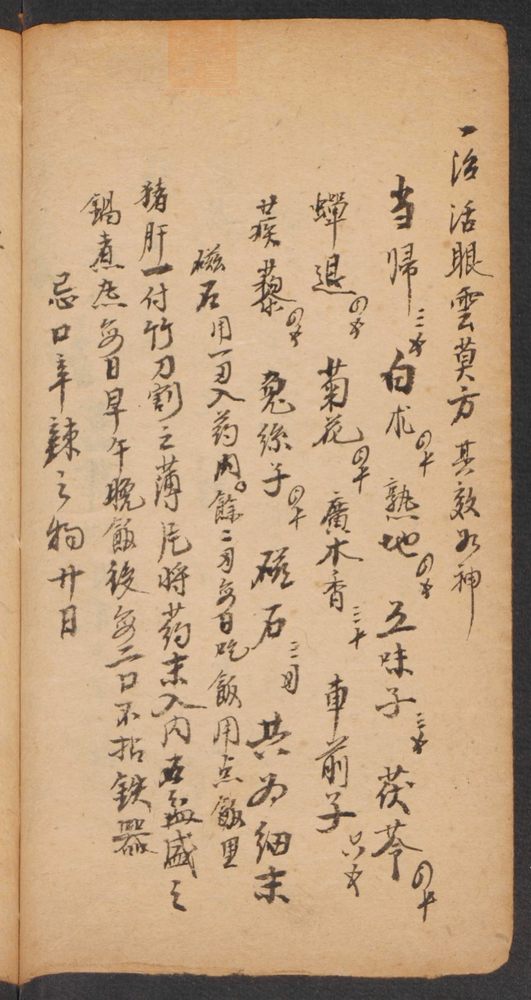 一治活眼雲莫方其效如神
当歸三钱 白朮四钱 熟地四钱 五味子三钱 茯苓四钱
蟬退四钱 菊花四钱 廣木香三钱 車前子
蒺藜四钱 兔絲子四钱 磁石三両 共为細末
磁石用一両入药内。餘二両每日吃飯用点飯里
猪肝一付竹刀割之薄片将药末入内盛之
鍋煮熟每日早午晚飯後每二口不拈鉄器
忌口辛辣之物廿日